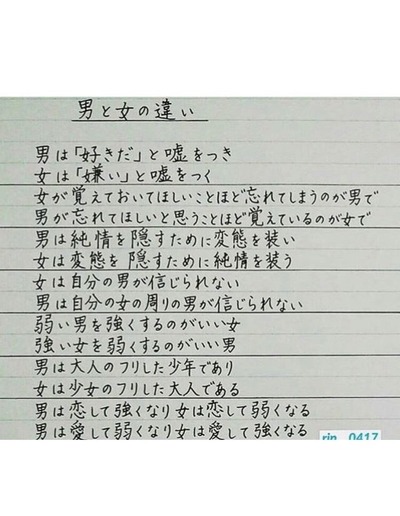 男と女の違い
男は「好きだ」と嘘をつき
女は「嫌い」と嘘をつく
女が覚えておいてほしいことほど忘れてしまうのが男で
男が忘れてほしいと思うことほど覚えているのが女で
男は純情を隠すために変態を装い
女は変態を隠すために純情を装う
女は自分の男が信じられない
男は自分の女の周りの男が信じられない
弱い男を強くするのがいい女
強い女を弱くするのがいい男
男は大人のフリした少年であり
女は少女のフリした大人である
男は恋して強くなり女は恋して弱くなる
男は愛して弱くなり女は愛して強くなる
rin__0417